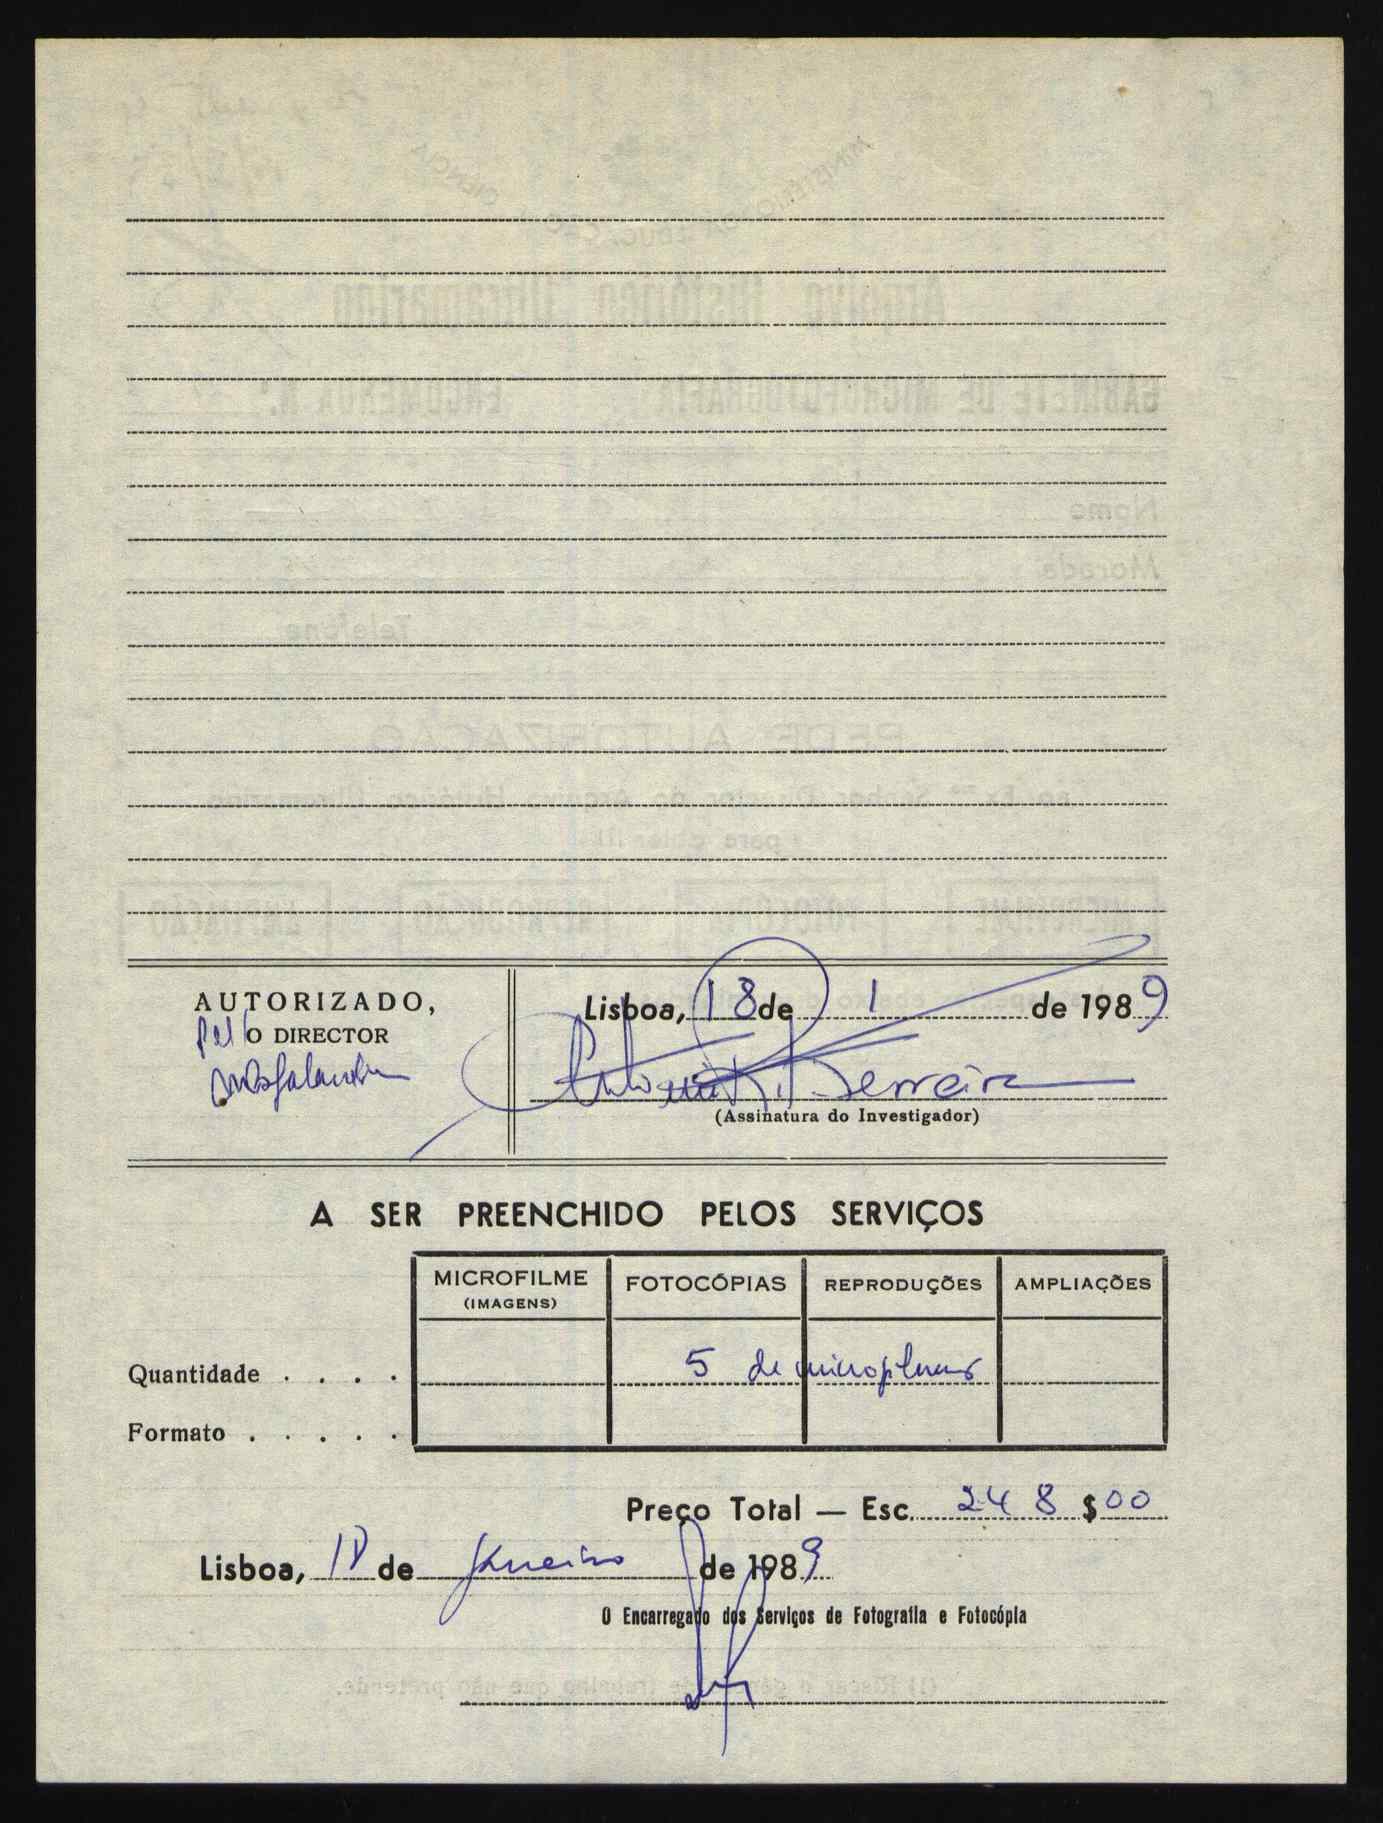 AUTORIZADO,
Pel'O DIRECTOR
Lisboa, 18 de 1 de 1989
Ferreira
(Assinatura do Investigador)
A SER PREENCHIDO PELOS SERVIÇOS
MICROFILME FOTOCÓPIAS REPRODUÇÕES AMPLIAÇÕES
(IMAGENS)
Quantidade . . . . 5 de microfilmes
Formato . . . . .
Preço Total — Esc. 248 $00
Lisboa, 18 de Janeiro de 1989
O Encarregado dos Serviços de Fotografia e Fotocópia